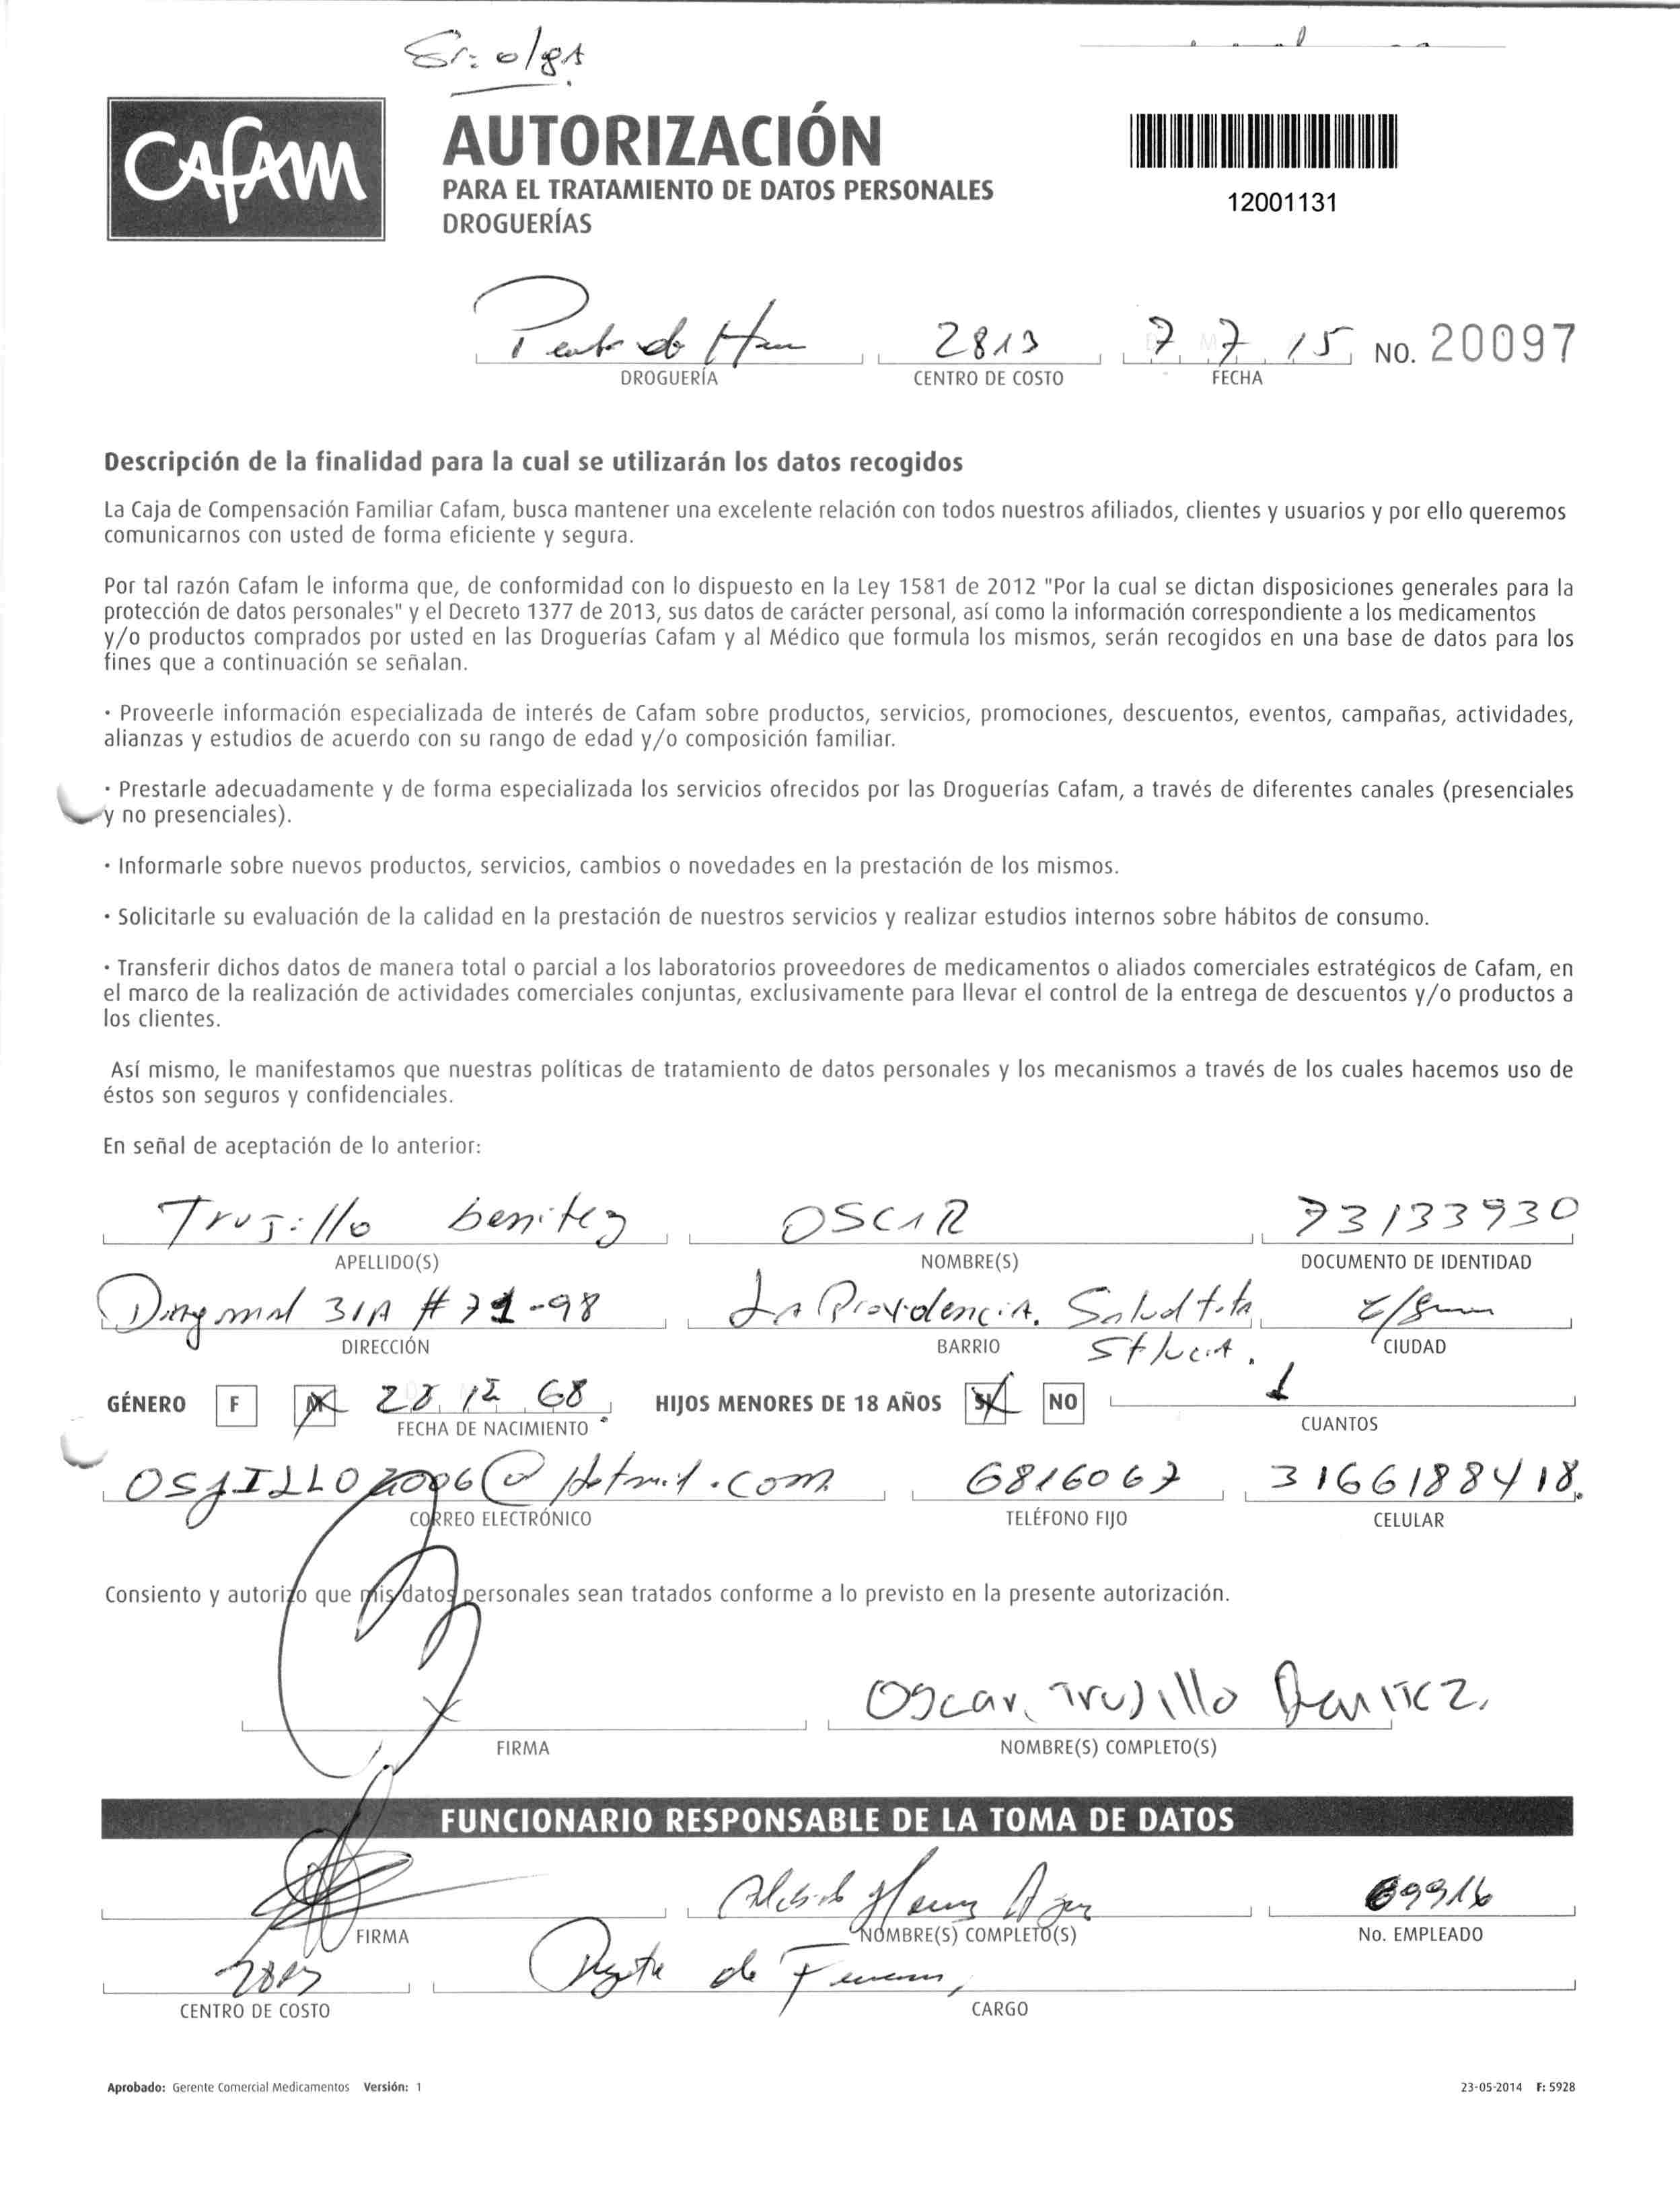 Sr: olgA
CAFAM
AUTORIZACIÓN
PARA EL TRATAMIENTO DE DATOS PERSONALES
DROGUERÍAS
12001131
2813 7 7 15 NO. 20097
DROGUERÍA CENTRO DE COSTO FECHA
Descripción de la finalidad para la cual se utilizarán los datos recogidos
La Caja de Compensación Familiar Cafam, busca mantener una excelente relación con todos nuestros afiliados, clientes y usuarios y por ello queremos
comunicarnos con usted de forma eficiente y segura.
Por tal razón Cafam le informa que, de conformidad con lo dispuesto en la Ley 1581 de 2012 "Por la cual se dictan disposiciones generales para la
protección de datos personales" y el Decreto 1377 de 2013, sus datos de carácter personal, así como la información correspondiente a los medicamentos
y/o productos comprados por usted en las Droguerías Cafam y al Médico que formula los mismos, serán recogidos en una base de datos para los
fines que a continuación se señalan.
· Proveerle información especializada de interés de Cafam sobre productos, servicios, promociones, descuentos, eventos, campañas, actividades,
alianzas y estudios de acuerdo con su rango de edad y/o composición familiar.
· Prestarle adecuadamente y de forma especializada los servicios ofrecidos por las Droguerías Cafam, a través de diferentes canales (presenciales
y no presenciales).
· Informarle sobre nuevos productos, servicios, cambios o novedades en la prestación de los mismos.
· Solicitarle su evaluación de la calidad en la prestación de nuestros servicios y realizar estudios internos sobre hábitos de consumo.
· Transferir dichos datos de manera total o parcial a los laboratorios proveedores de medicamentos o aliados comerciales estratégicos de Cafam, en
el marco de la realización de actividades comerciales conjuntas, exclusivamente para llevar el control de la entrega de descuentos y/o productos a
los clientes.
Así mismo, le manifestamos que nuestras políticas de tratamiento de datos personales y los mecanismos a través de los cuales hacemos uso de
éstos son seguros y confidenciales.
En señal de aceptación de lo anterior:
Trujillo benitez OSCAR 73133930
APELLIDO(S) NOMBRE(S) DOCUMENTO DE IDENTIDAD
31A # 71-98 LA Providencia.
DIRECCIÓN BARRIO CIUDAD
GÉNERO F M 28 12 68 HIJOS MENORES DE 18 AÑOS SI NO 1
FECHA DE NACIMIENTO CUANTOS
OSJILLO2006@Hotmil.com 6816067 3166188418.
CORREO ELECTRÓNICO TELÉFONO FIJO CELULAR
Consiento y autorizo que mis datos personales sean tratados conforme a lo previsto en la presente autorización.
Oscar. Trujillo Benitez.
FIRMA NOMBRE(S) COMPLETO(S)
FUNCIONARIO RESPONSABLE DE LA TOMA DE DATOS
FIRMA NOMBRE(S) COMPLETO(S) No. EMPLEADO
2813 de
CENTRO DE COSTO CARGO
Aprobado: Gerente Comercial Medicamentos Versión: 1 23-05-2014 F: 5928